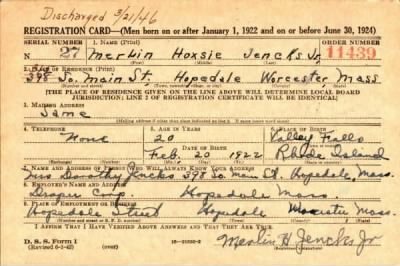 Discharged 3/21/46
REGISTRATION CARD—(Men born on or after January 1, 1922 and on or before June 30, 1924)
SERIAL NUMBER 1. NAME (Print) ORDER NUMBER
N 27 Merlin Hoxsie Jencks Jr 11439
(First) (Middle) (Last)
2. PLACE OF RESIDENCE (Print)
398 So. Main St. Hopedale Worcester Mass
(Number and street) (Town, township, village, or city) (County) (State)
[THE PLACE OF RESIDENCE GIVEN ON THE LINE ABOVE WILL DETERMINE LOCAL BOARD
JURISDICTION; LINE 2 OF REGISTRATION CERTIFICATE WILL BE IDENTICAL]
3. MAILING ADDRESS
Same
[Mailing address if other than place indicated on line 2. If same insert word same]
4. TELEPHONE 5. AGE IN YEARS 6. PLACE OF BIRTH
None 20 Valley Falls
DATE OF BIRTH
Feb. 20 1922 Rhode Island
(Exchange) (Number) (Mo.) (Day) (Yr.) (State or country)
7. NAME AND ADDRESS OF PERSON WHO WILL ALWAYS KNOW YOUR ADDRESS
Mrs Dorothy Jencks 398 So. Main St. Hopedale, Mass.
8. EMPLOYER'S NAME AND ADDRESS
Draper Corp. Hopedale Mass.
9. PLACE OF EMPLOYMENT OR BUSINESS
Hopedale Street Hopedale Worcester Mass.
(Number and street or R. F. D. number) (Town) (County) (State)
I AFFIRM THAT I HAVE VERIFIED ABOVE ANSWERS AND THAT THEY ARE TRUE.
D. S. S. Form 1
(Revised 6-9-42) (over)
Merlin H Jencks Jr
(Registrant's signature)